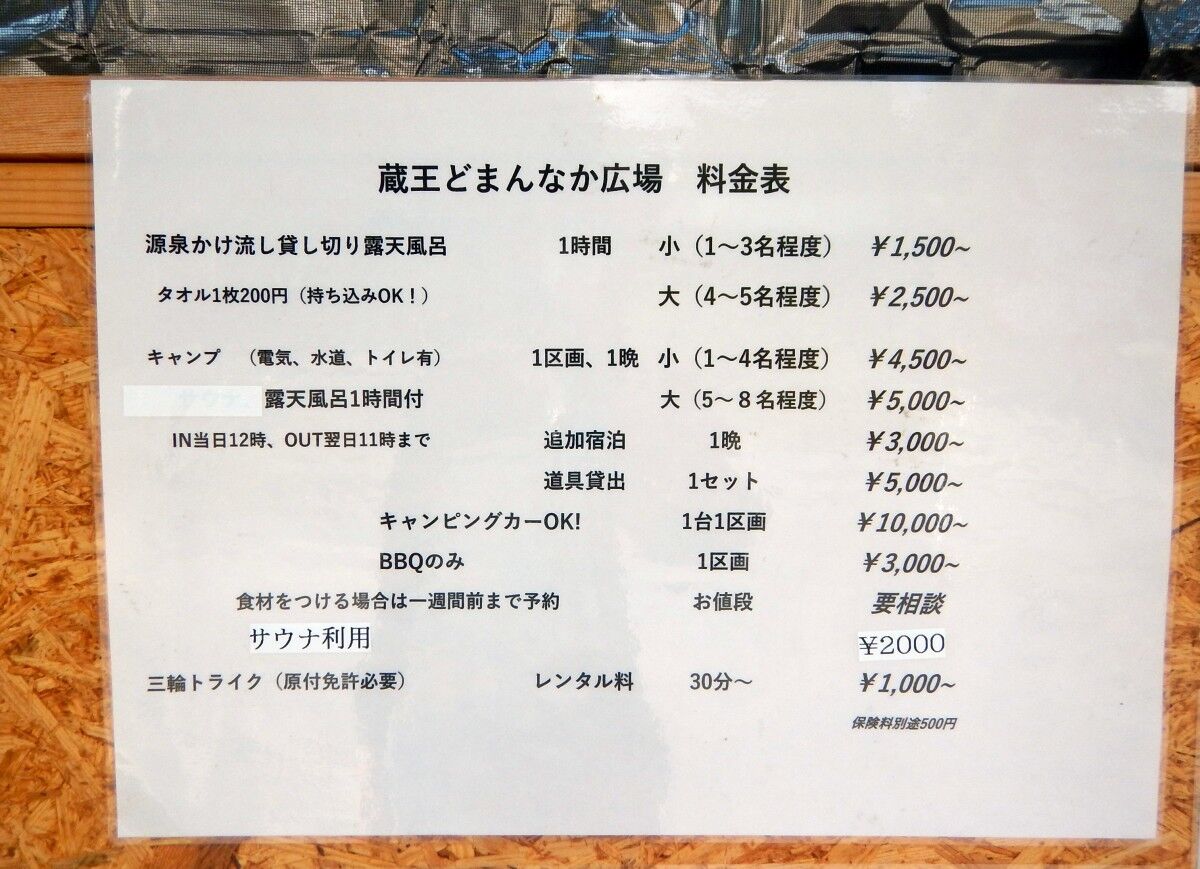 蔵王どまんなか広場 料金表
源泉かけ流し貸し切り露天風呂 1時間 小（1～3名程度） ￥1,500~
タオル1枚200円（持ち込みOK！） 大（4～5名程度） ￥2,500~
キャンプ （電気、水道、トイレ有） 1区画、1晩 小（1～4名程度） ￥4,500~
サウナ、露天風呂1時間付 大（5～８名程度） ￥5,000~
IN当日12時、OUT翌日11時まで 追加宿泊 1晩 ￥3,000~
道具貸出 1セット ￥5,000~
キャンピングカーOK! 1台1区画 ￥10,000~
BBQのみ 1区画 ￥3,000~
食材をつける場合は一週間前まで予約 お値段 要相談
サウナ利用 ¥2000
三輪トライク（原付免許必要） レンタル料 30分～ ￥1,000~
保険料別途500円